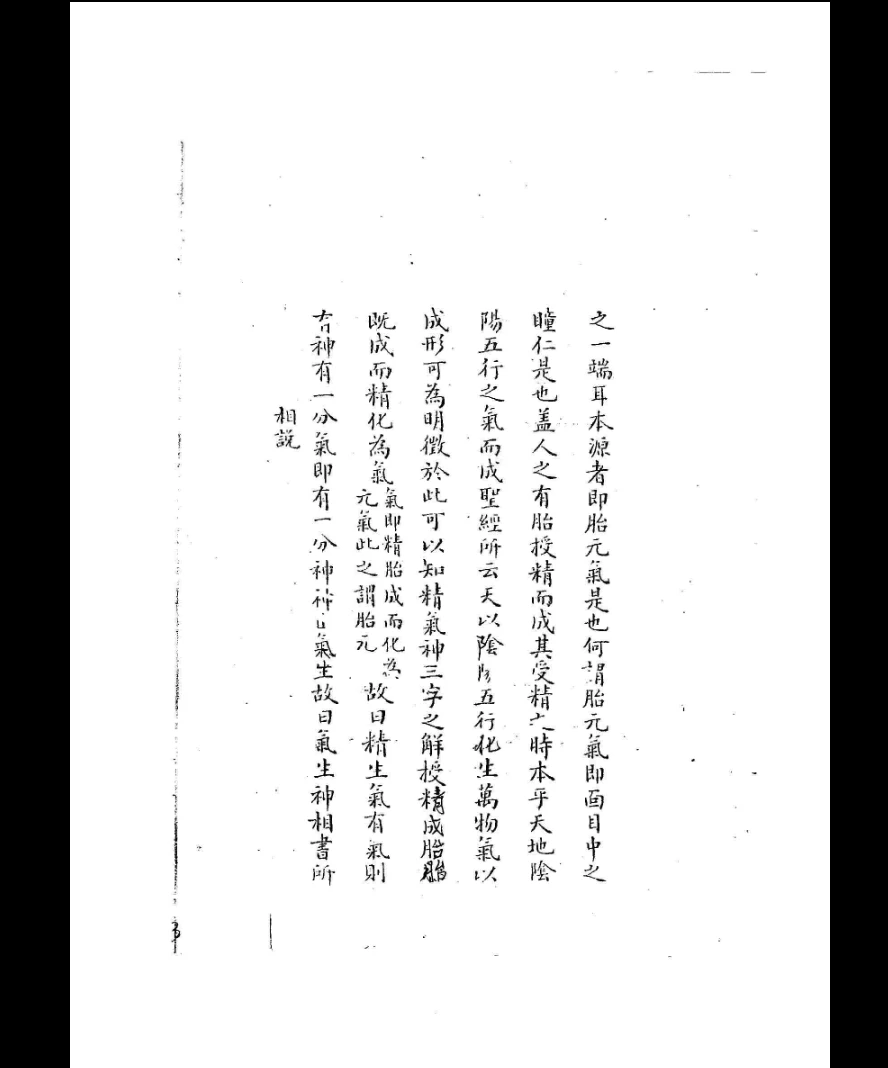 之一端耳本源者即胎元氣是也何謂胎元氣即面目中之
瞳仁是也盖人之有胎授精而成其受精之時本乎天地陰
陽五行之氣而成聖經所云天以陰陽五行化生萬物氣以
成形可為明徵於此可以知精氣神三字之解授精成胎胎
既成而精化為氣
氣即精胎成而化為
元氣此之謂胎元
故曰精生氣有氣則
有神有一分氣即有一分神神由氣生故曰氣生神相書所
相說